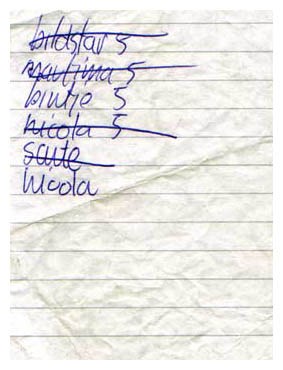 bildstar 5
maxima 5
bintje 5
nicola 5
sante
nicola